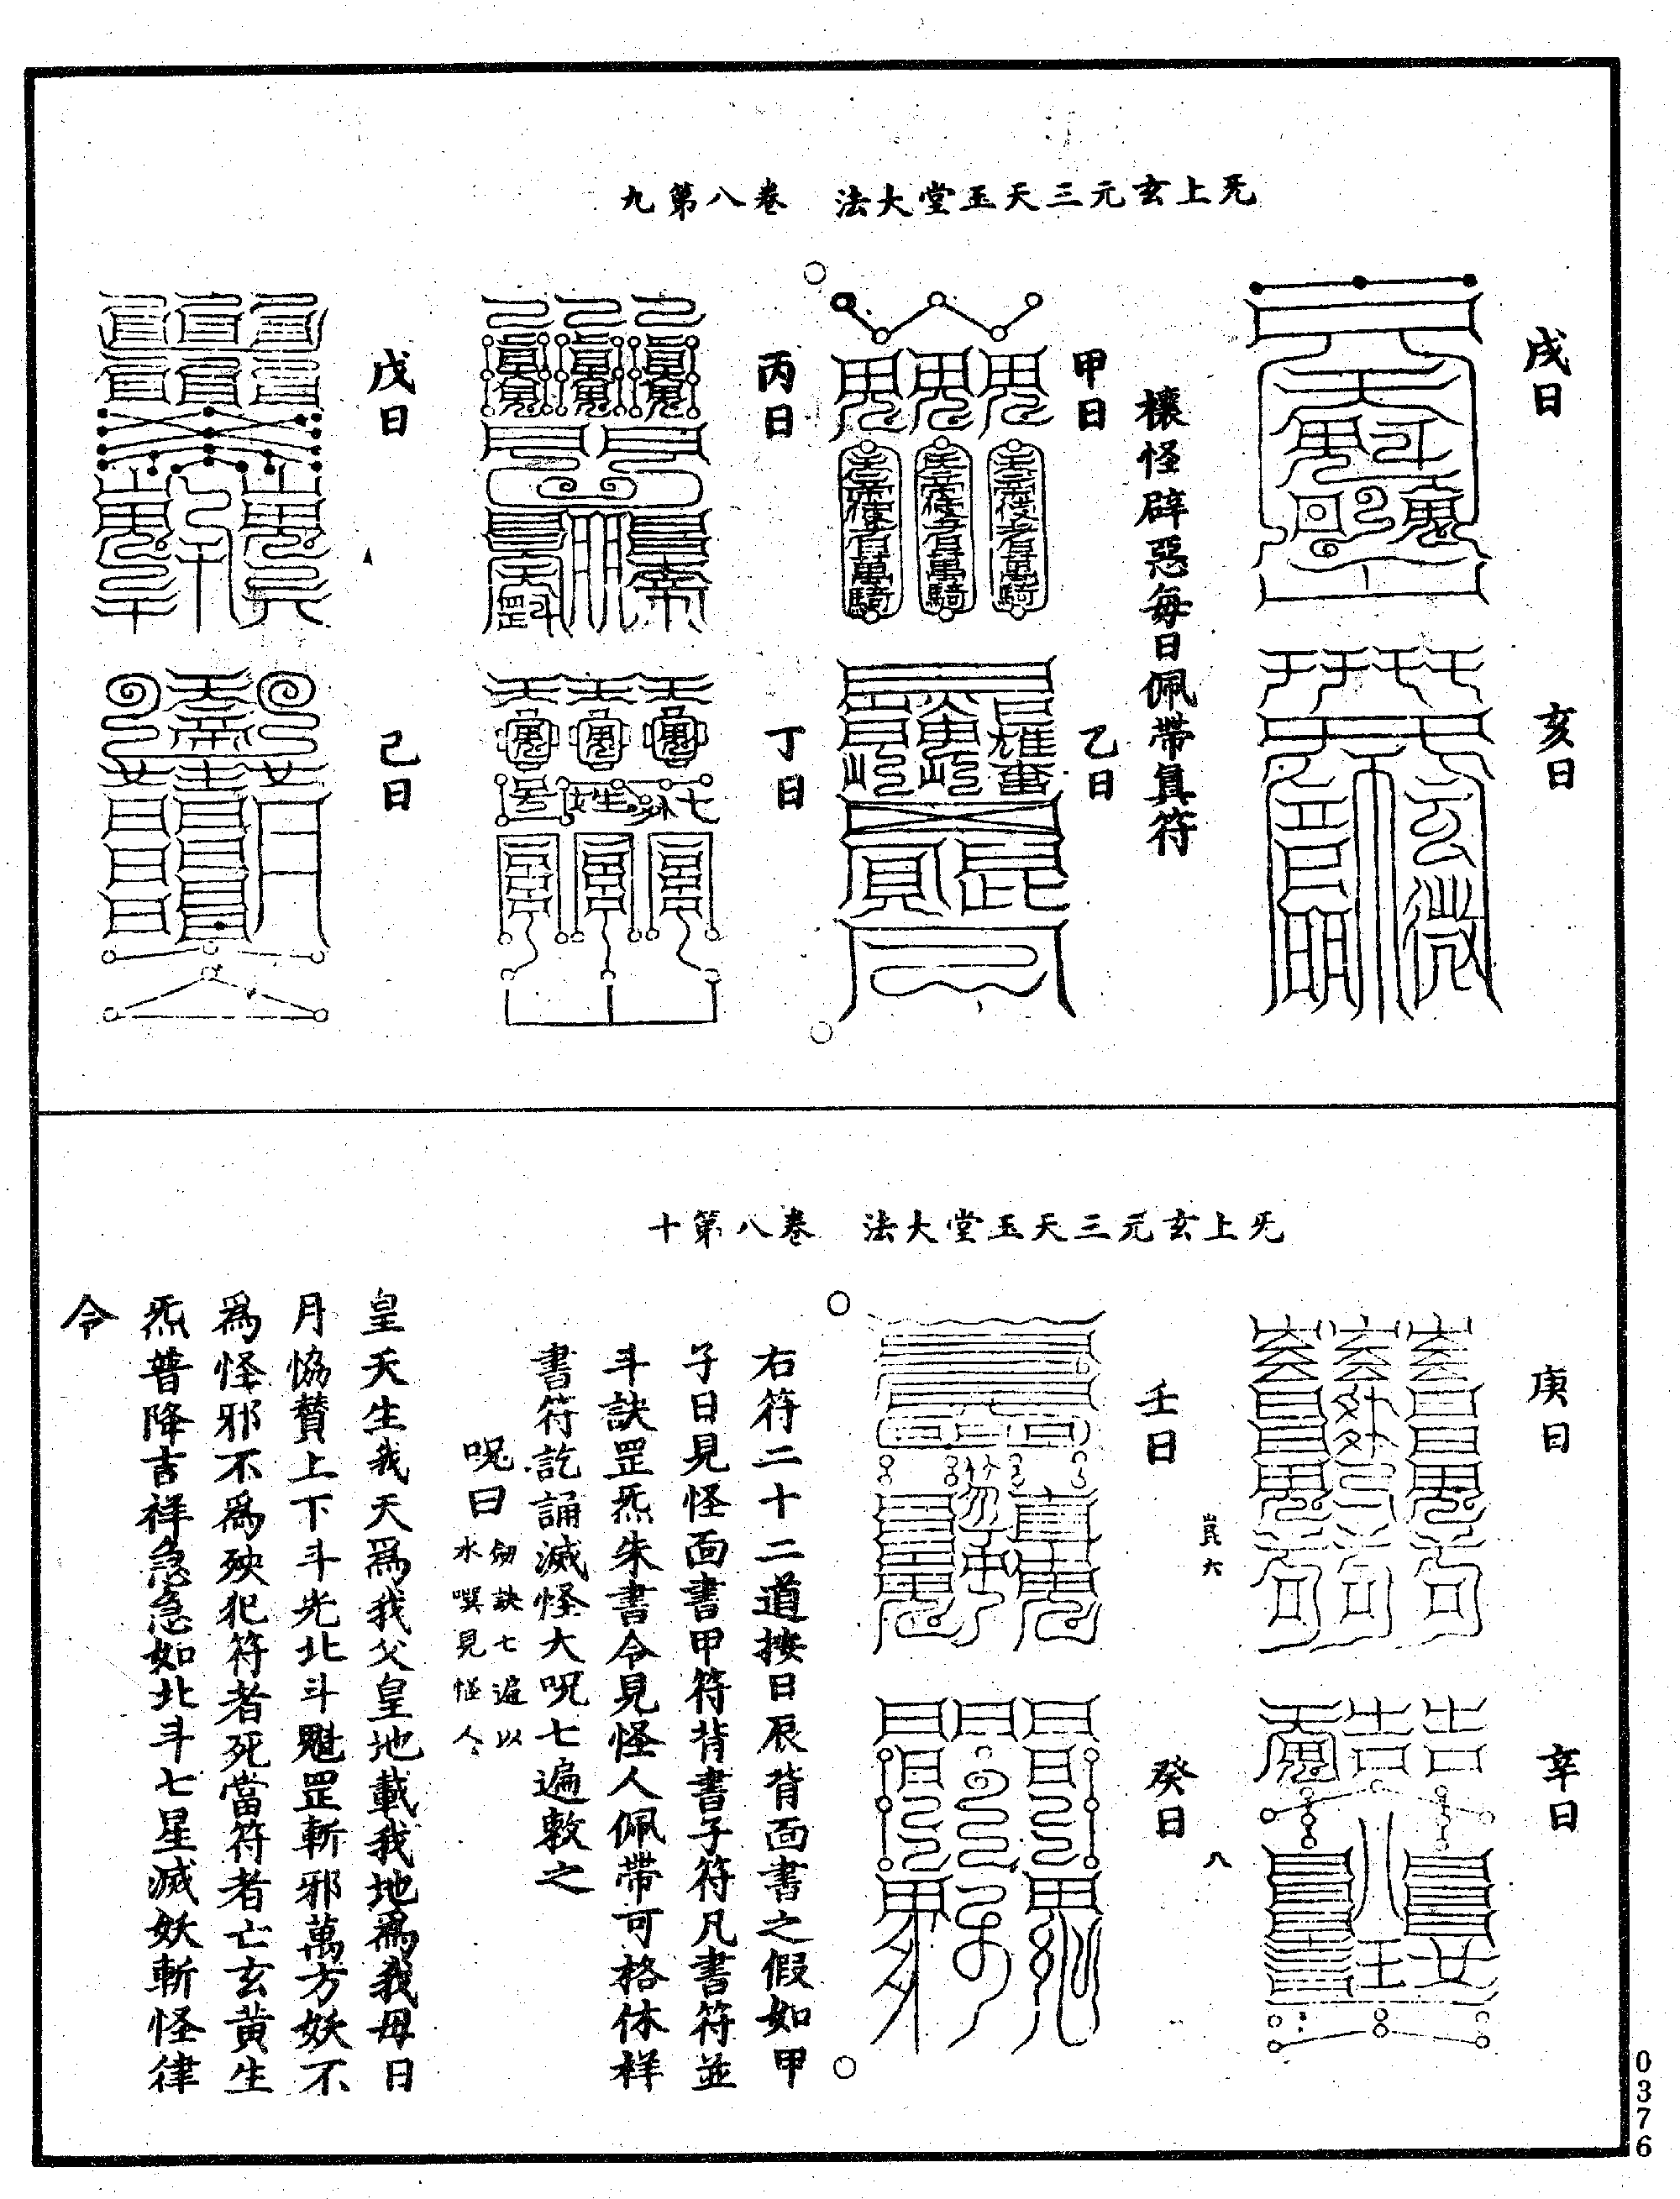 无上玄元三天玉堂大法　卷八第九
戌日
亥日
禳怪辟惡每日佩帶真符
甲日
乙日
丙日
丁日
戊日
己日
无上玄元三天玉堂大法　卷八第十
庚日
辛日
崑六
八
壬日
癸日
右符二十二道按日辰背面書之假如甲
子日見怪面書甲符背書子符凡書符並
斗訣罡炁朱書令見怪人佩帶可格休祥
書符訖誦滅怪大呪七遍敕之
呪曰
劒訣七遍以
水噀見怪人
皇天生我天爲我父皇地載我地爲我母日
月恊贊上下斗光北斗魁罡斬邪萬方妖不
爲怪邪不爲殃犯符者死當符者亡玄黄生
炁普降吉祥急急如北斗七星滅妖斬怪律
令
0376